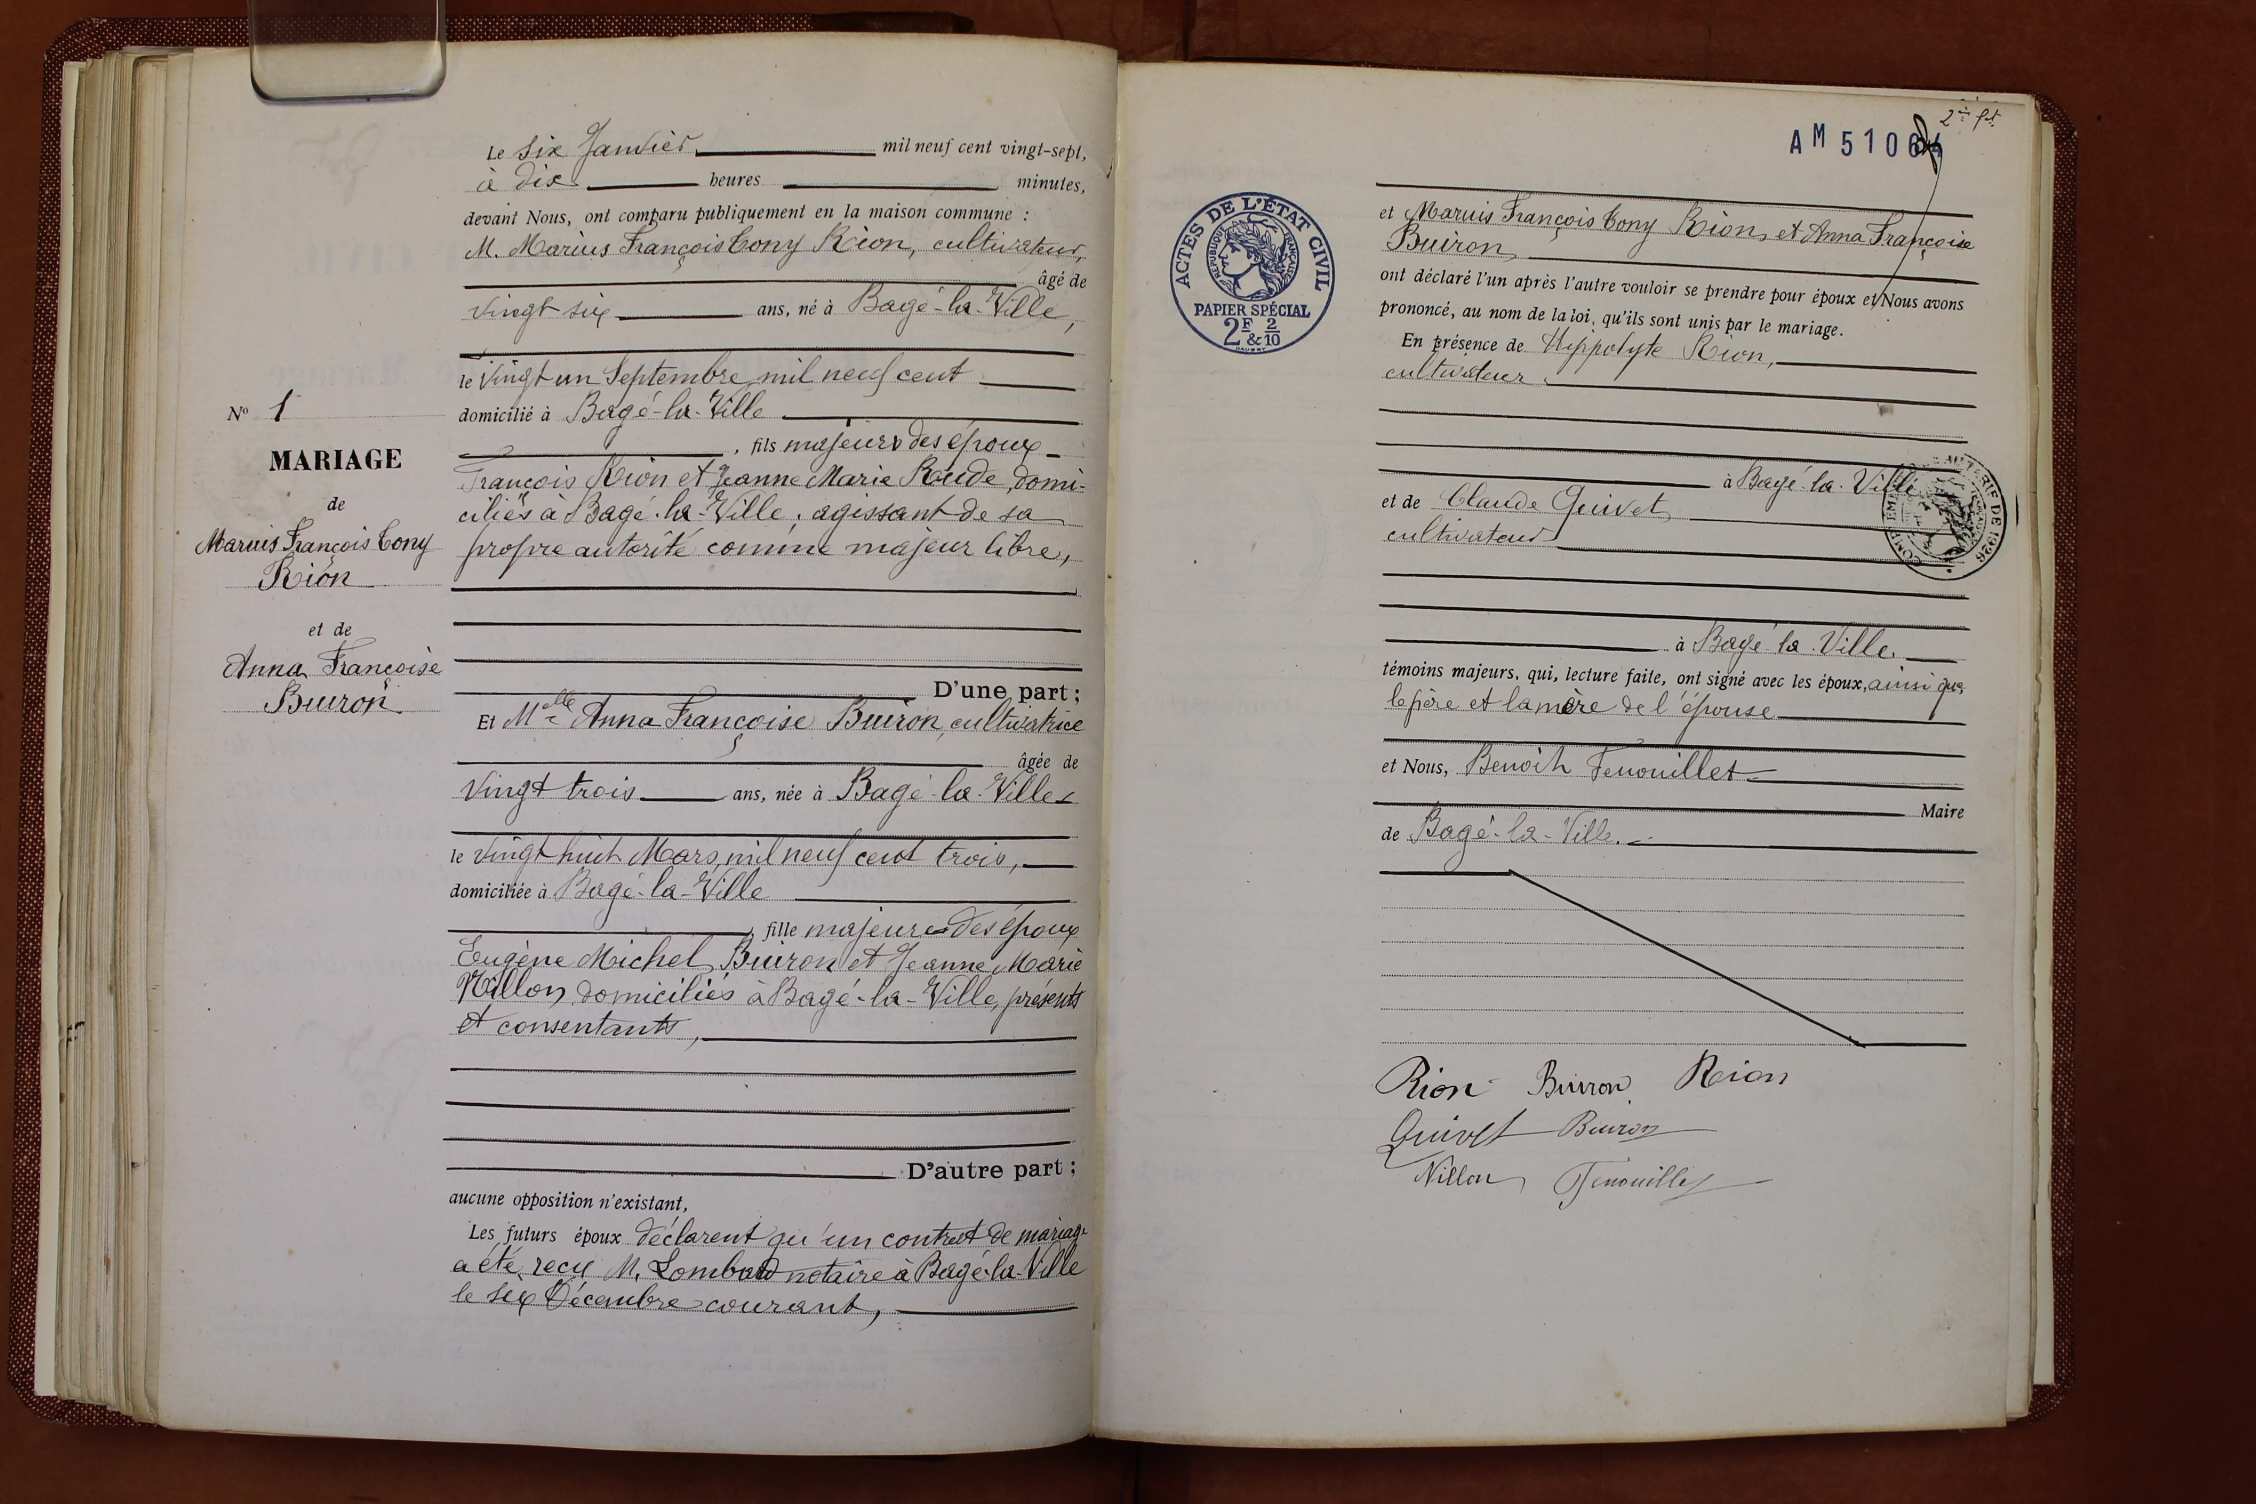 Le six Janvier mil neuf cent vingt-sept,
à dix heures minutes,
devant Nous, ont comparu publiquement en la maison commune :
M. Marius François Tony Rion, cultivateur,
âgé de
vingt six ans, né à Bagé-la-Ville,
le vingt un Septembre mil neuf cent
domicilié à Bagé-la-Ville
, fils majeur des époux
François Rion et Jeanne Marie Rude, domi-
ciliés à Bagé-la-Ville, agissant de sa
propre autorité comme majeur libre,
D'une part ;
Et Melle Anna Françoise Buiron, cultivatrice
âgée de
vingt trois ans, née à Bagé-la-Ville
le vingt huit Mars mil neuf cent trois,
domiciliée à Bagé-la-Ville
, fille majeure des époux
Eugène Michel Buiron et Jeanne Marie
Nillon domiciliés à Bagé-la-Ville, présents
et consentants,
D'autre part ;
aucune opposition n'existant,
Les futurs époux déclarent qu'un contrat de mariage
a été reçu M. Lombard notaire à Bagé-la-Ville
le six Décembre courant,
N° 1
MARIAGE
de
Marius François Tony
Rion
et de
Anna Françoise
Buiron
AM 5106
ACTES DE L'ÉTAT CIVIL
RÉPUBLIQUE FRANÇAISE
PAPIER SPÉCIAL
2F & 2/10
et Marius François Tony Rion, et Anna Françoise
Buiron,
ont déclaré l'un après l'autre vouloir se prendre pour époux et Nous avons
prononcé, au nom de la loi, qu'ils sont unis par le mariage.
En présence de Hippolyte Rion,
cultivateur
à Bagé-la-Ville
et de Claude Quivet,
cultivateur
DE 1926
à Bagé-la-Ville,
témoins majeurs, qui, lecture faite, ont signé avec les époux, ainsi que
le père et la mère de l'épouse
et Nous, Benoît Fenouillet
Maire
de Bagé-la-Ville.
Rion Buiron Rion
Quivet Buiron
Nillon Fenouillet